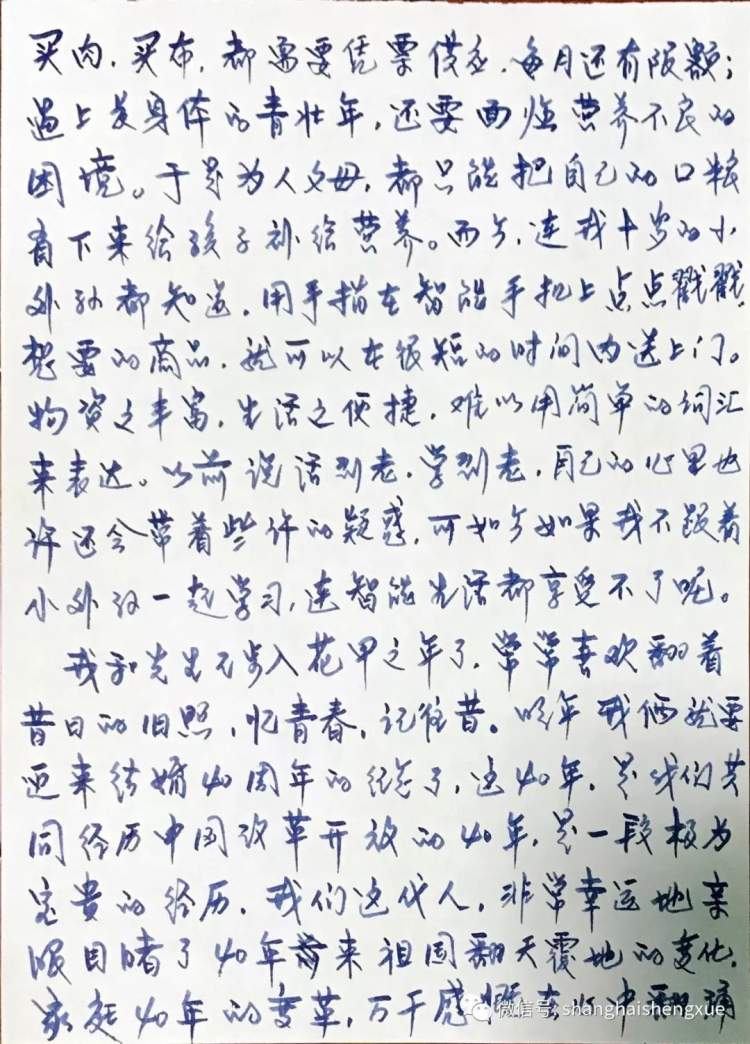 买肉，买布，都需要凭票供应，每月还有限额；
遇上长身体的青壮年，还要面临营养不良的
困境。于是为人父母，都只能把自己的口粮
省下来给孩子补给营养。而今，连我十岁的小
外孙都知道，用手指在智能手机上点点戳戳，
想要的商品，就可以在很短的时间内送上门。
物资之丰富，生活之便捷，难以用简单的词汇
来表达。以前说活到老，学到老，自己的心里也
许还会带着些许的疑惑，可如今如果我不跟着
小外孙一起学习，连智能生活都享受不了呢。
我和先生已步入花甲之年了，常常喜欢翻着
昔日的旧照，忆青春，记往昔。明年我俩就要
迎来结婚40周年的纪念了，这40年，是我们共
同经历中国改革开放的40年，是一段极为
宝贵的经历，我们这代人，非常幸运地亲
眼目睹了40年来祖国翻天覆地的变化，
家庭40年的变革，万千感慨在心中翻涌
微信号: shanghaishengxue